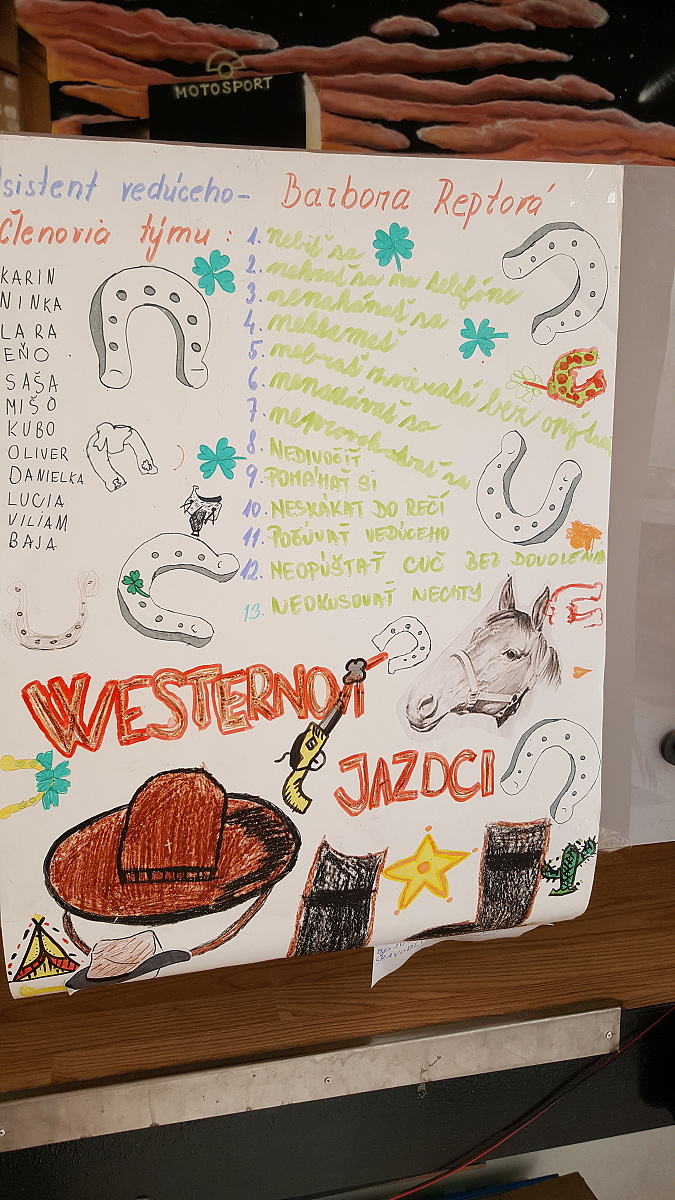 MOTOSPORT
sistent vedúceho- Barbora Reptová
Členovia týmu :
KARIN
NINKA
LARA
EŇO
SAŠA
MIŠO
KUBO
OLIVER
DANIELKA
LUCIA
VILIAM
BAJA
1. Nebiť sa
2. nehrať sa na telefóne
3. nenaháňať sa
4. neklameš
5. nebrať zvieratá bez opýtania
6. nenadávať sa
7. neprovokovať sa
8. NEDIVOČIŤ
9. POMÁHAŤ SI
10. NESKÁKAŤ DO REČI
11. POČÚVAŤ VEDÚCEHO
12. NEOPÚŠTAŤ CVČ BEZ DOVOLENIA
13. NEOKUSOVAŤ NECHTY
WESTERNOVÍ
JAZDCI